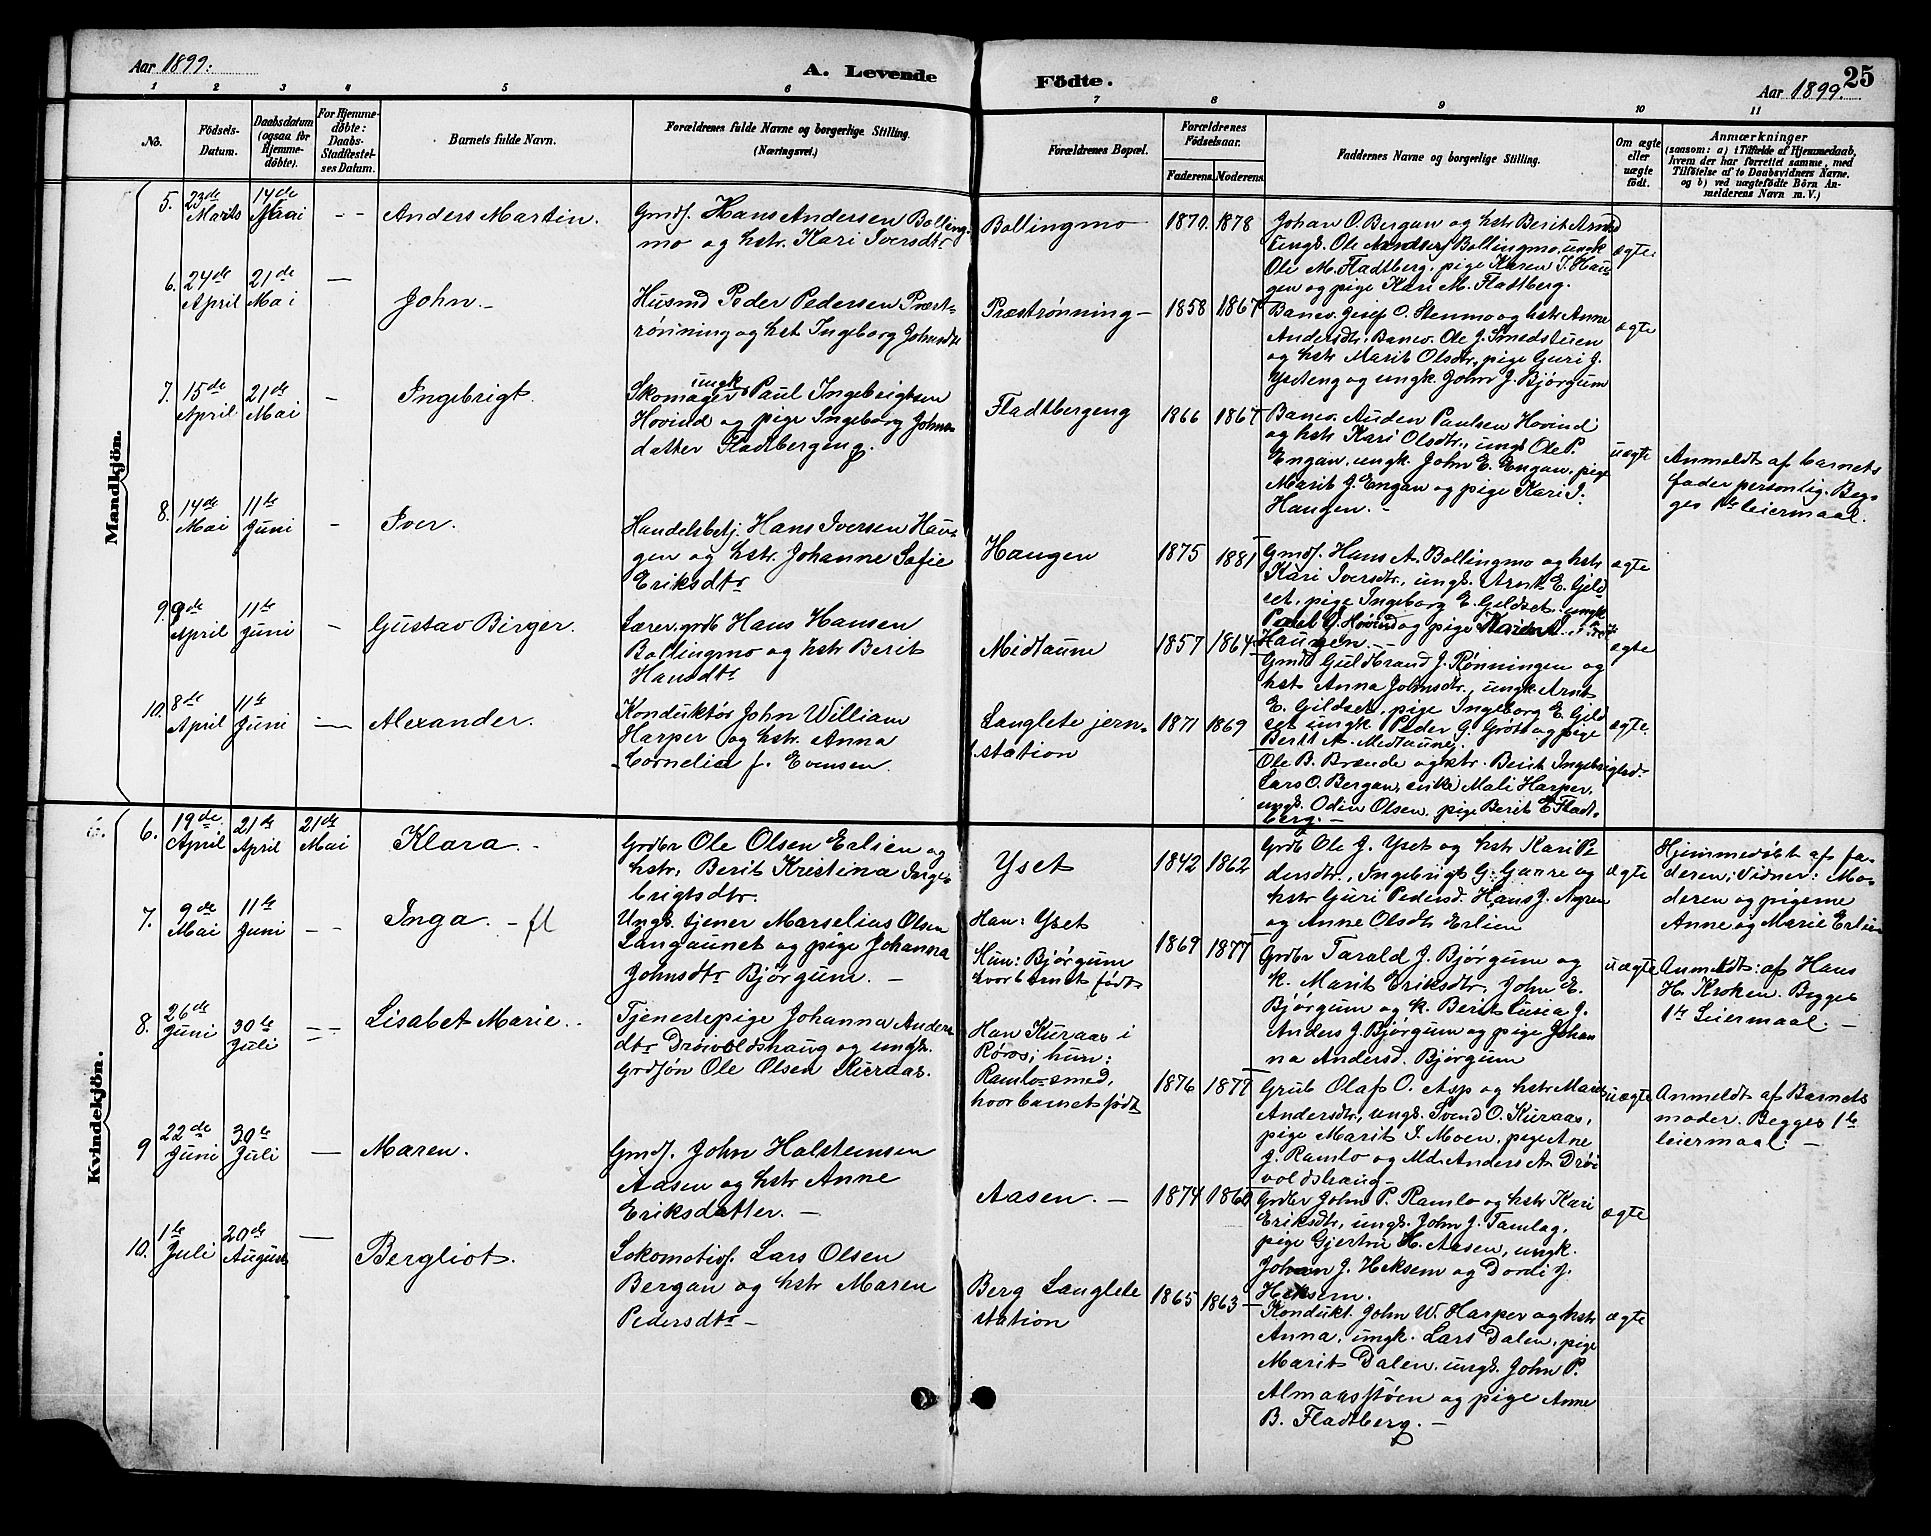 Aar 1899.
A. Levende
Födte.
Aar 1899.
25
1 2 3 4 5 6 7 8 9 10 11
No.
Födsels-
Datum.
Daabsdatum
(ogsaa for
Hjemme-
döbte).
For Hjemme-
döbte:
Daabs-
Stadfæstel-
ses Datum.
Barnets fulde Navn.
Forældrenes fulde Navne og borgerlige Stilling.
(Næringsvei.)
Forældrenes Bopæl.
Forældrenes
Födselsaar.
Faderens. Moderens.
Faddernes Navne og borgerlige Stilling.
Om ægte
eller
uægte
födt.
Anmærkninger
(saasom: a) i Tilfælde af Hjemmedaab,
hvem der har forrettet samme, med
Tilföielse af to Daabsvidners Navne.
og b) ved uægtefödte Börn An-
melderens Navn m. V.)
Mandkjön.
5. 23de Marts
14de Mai
- -
Anders Martin.
Gmdf. Hans Andersen Bolling-
mo og hstr. Kari Iversdtr
Bollingmo
1870. 1878
Johan O. Bergan og hstr Berit Arntsd
ungk. Ole Andersen Bollingmo, ungk
Ole M. Fladtberg, pige Karen I. Hau-
gen og pige Kari M. Fladtberg.
ægte
6. 24de April
21de Mai
—
John. -
Husmd Peder Pedersen Præst-
rønning og hst Ingeborg Johnsdtr
Præstrønning
1858 1867
Banev. Josef O. Stenmo og hstr Anne
Andersdtr. Banev. Ole J. Smedstuen
og hstr Marit Olsdtr, pige Guri J.
Ysteng og ungk. John J. Bjørgum
ægte
7. 15de April
21de Mai
-
Ingebrigt.
Skomager ungk Paul Ingebrigtsen
Hovind og pige Ingeborg Johns-
datter Fladtbergeng.
Fladtbergeng
1866 1867
Banev. Auden Paulsen Hovind
og hstr Kari Olsdtr., ungk Ole P.
Engan, ungk. John E. Engan, pige
Marit J. Engan og pige Kari I.
Haugen. -
uægte
Anmeldt af barnets
fader personlig. Beg-
ges 1ste leiermaal.
8. 14de Mai
11te Juni
-
Iver.
Handelsbetj. Hans Iversen Hau-
gen og hstr. Johanne Sofie
Eriksdtr
Haugen
1875 1881
Gmdf. Hans A. Bollingmo og hstr
Kari Iversdtr., ungk. Arnt E. Gild-
set, pige Ingeborg E. Gildset, ungk
Paul J. Hovind og pige Karen
Haugen. -
ægte
9. 9de April
11te Juni
-
Gustav Birger.
Lærer, grdb Hans Hansen
Bollingmo og hstr Berit
Hansdtr
Midtaune
1857 1864
Gmd Guldbrand J. Rønningen og
hst Anna Johnsdtr, ungk Arnt
E. Gildset, pige Ingeborg E. Gild
set ungk. Peder G. Grøtt og pige
Berit A. Midtaune.
ægte
10. 8de April
11te Juni
—
Alexander.
Konduktør John William
Harper og hstr. Anna
Cornelia f. Evensen.
Langlete jern-
b.station
1871 1869
Ole B. Brænde og hstr. Berit Ingebrigtsd-
Lars O. Bergan, enke Mali Harper,
ungk. Odin Olsen, pige Berit E. Fladt-
berg. -
ægte.
Kvindekjön.
6. 19de April
21de April
21de Mai
Klara. -
Grdbr Ole Olsen Erlien og
hstr, Berit Kristina Inge-
brigtsdtr.
Yset
1842 1862
Grdb Ole J. Yset og hstr Kari Pe
dersdtr., Ingebrigt G. Gaare og
hstr Guri Pedersd. Hans J. Myren
og Anne Olsdtr Erlien
ægte
Hjemmedøbt af fa-
deren; Vidner: Mo-
deren og pigerne
Anne og Marie Erlien
7. 9de Mai
11te Juni
- -
Inga. - fl
Ungk. tjener Marselius Olsen
Langaunet og pige Johanna
Johnsdtr Bjørgum. -
Han: Yset
Hun: Bjørgum
hvor barnet født
1869 1877
Grdbr Tarald J. Bjørgum og
k. Marit Eriksdtr. John E.
Bjørgum og k. Berit Lusia J.
Anders J. Bjørgum og pige Johan
na Andersd. Bjørgum
uægte
Anmeldt: af Hans
H. Kroken. Begges
1te Leiermaal. -
8. 26de Juni
30te Juli
Lisabet Marie.
Tjenestepige Johanna Anders
dtr Drøivoldshaug og ungk.
Grdsøn Ole Olsen Kuraas.
Han Kuraas i
Røros; hun:
Ramlo-smed,
hvor barnet født
1876 1877
Grub Olaf O. Asp og hstr Maren
Andersdtr, ungk. Svend O. Kuraas,
pige Marit S. Moen, pige Ane
J. Ramlo og Md. Anders A. Drøi
voldshaug -
uægte
Anmeldt af Barnets
moder. Begges 1te
leiermaal. -
9 22de Juni
30te Juli
—
Maren.
Gmdf. John Halstensen
Aasen og hstr Anne
Eriksdatter. -
Aasen. -
1874 1860
Grdbr John P. Ramlo og hstr Kari
Eriksdtr, ungk. John J. Tamlag,
pige Gjertru H. Aasen, ungk.
Johan J. Heksem og Dordi J.
Heksem.
ægte
10. 1te Juli
20de August
—
Bergliot.
Lokomotivf. Lars Olsen
Bergan og hstr Maren
Pedersdtr -
Berg Langlete
station
1865 1863
Kondukt. John W. Harper og hstr
Anna, ungk. Lars Dalen, pige
Marit Dalen, ungk. John P.
Almaasstøen og pige Anne
B. Fladtberg. -
ægte